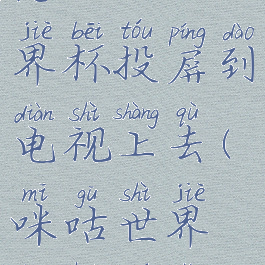 jiè bēi tóu píng dào
界杯投屏到
diàn shì shàng qù
电视上去(
mī gū shì jiè
咪咕世界